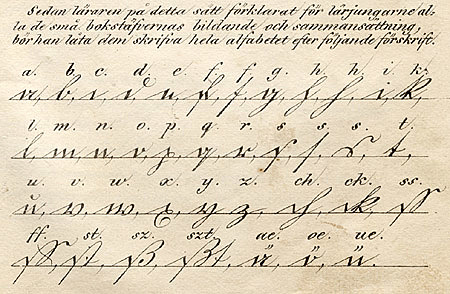 Sedan läraren på detta sätt förklarat för lärjungarne al-
la de små bokstäfvernas bildande och sammansättning,
bör han låta dem skrifva hela alfabetet efter följande förskrift.
a. b. c. d. e. f. f. g. h. h. i. k.
a, b, c, d, e, f, f, g, h, h, i, k,
l. m. n. o. p. q. r. s. s. s. t.
l, m, n, o, p, q, r, ſ, ſ, s, t,
u. v. w. x. y. z. ch. ck. ss.
u, v, w, x, y, z, ch, ck, ſſ
ff. st. sz. szt. ae. oe. ue.
ff, ſt, ß, ßt, ä, ö, ü.